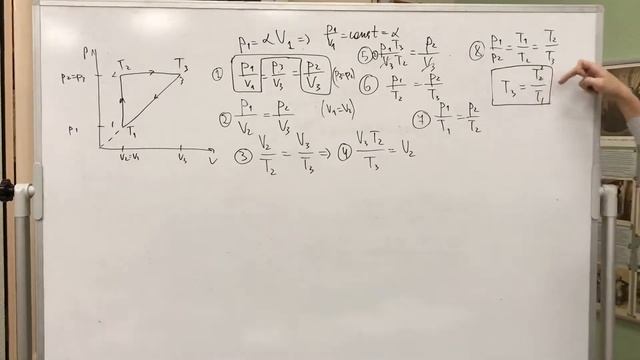 P
T₂
T₃
p₂=p₃
2
3
p₁
1
T₁
V₂=V₁
V₃
V
p₁ = αV₁ ⇒ p₁/V₁ = const = α
① p₁/V₁ = p₃/V₃ = p₂/V₃ (p₃=p₂)
② p₁/V₂ = p₂/V₃ (V₁=V₂)
③ V₂/T₂ = V₃/T₃ ⇒ ④ V₃T₂/T₃ = V₂
⑤ p₁T₃/V₃T₂ = p₂/V₃
⑥ p₁/T₂ = p₂/T₃
⑦ p₁/T₁ = p₂/T₂
⑧ p₁/p₂ = T₁/T₂ = T₂/T₃
T₃ = T₂²/T₁